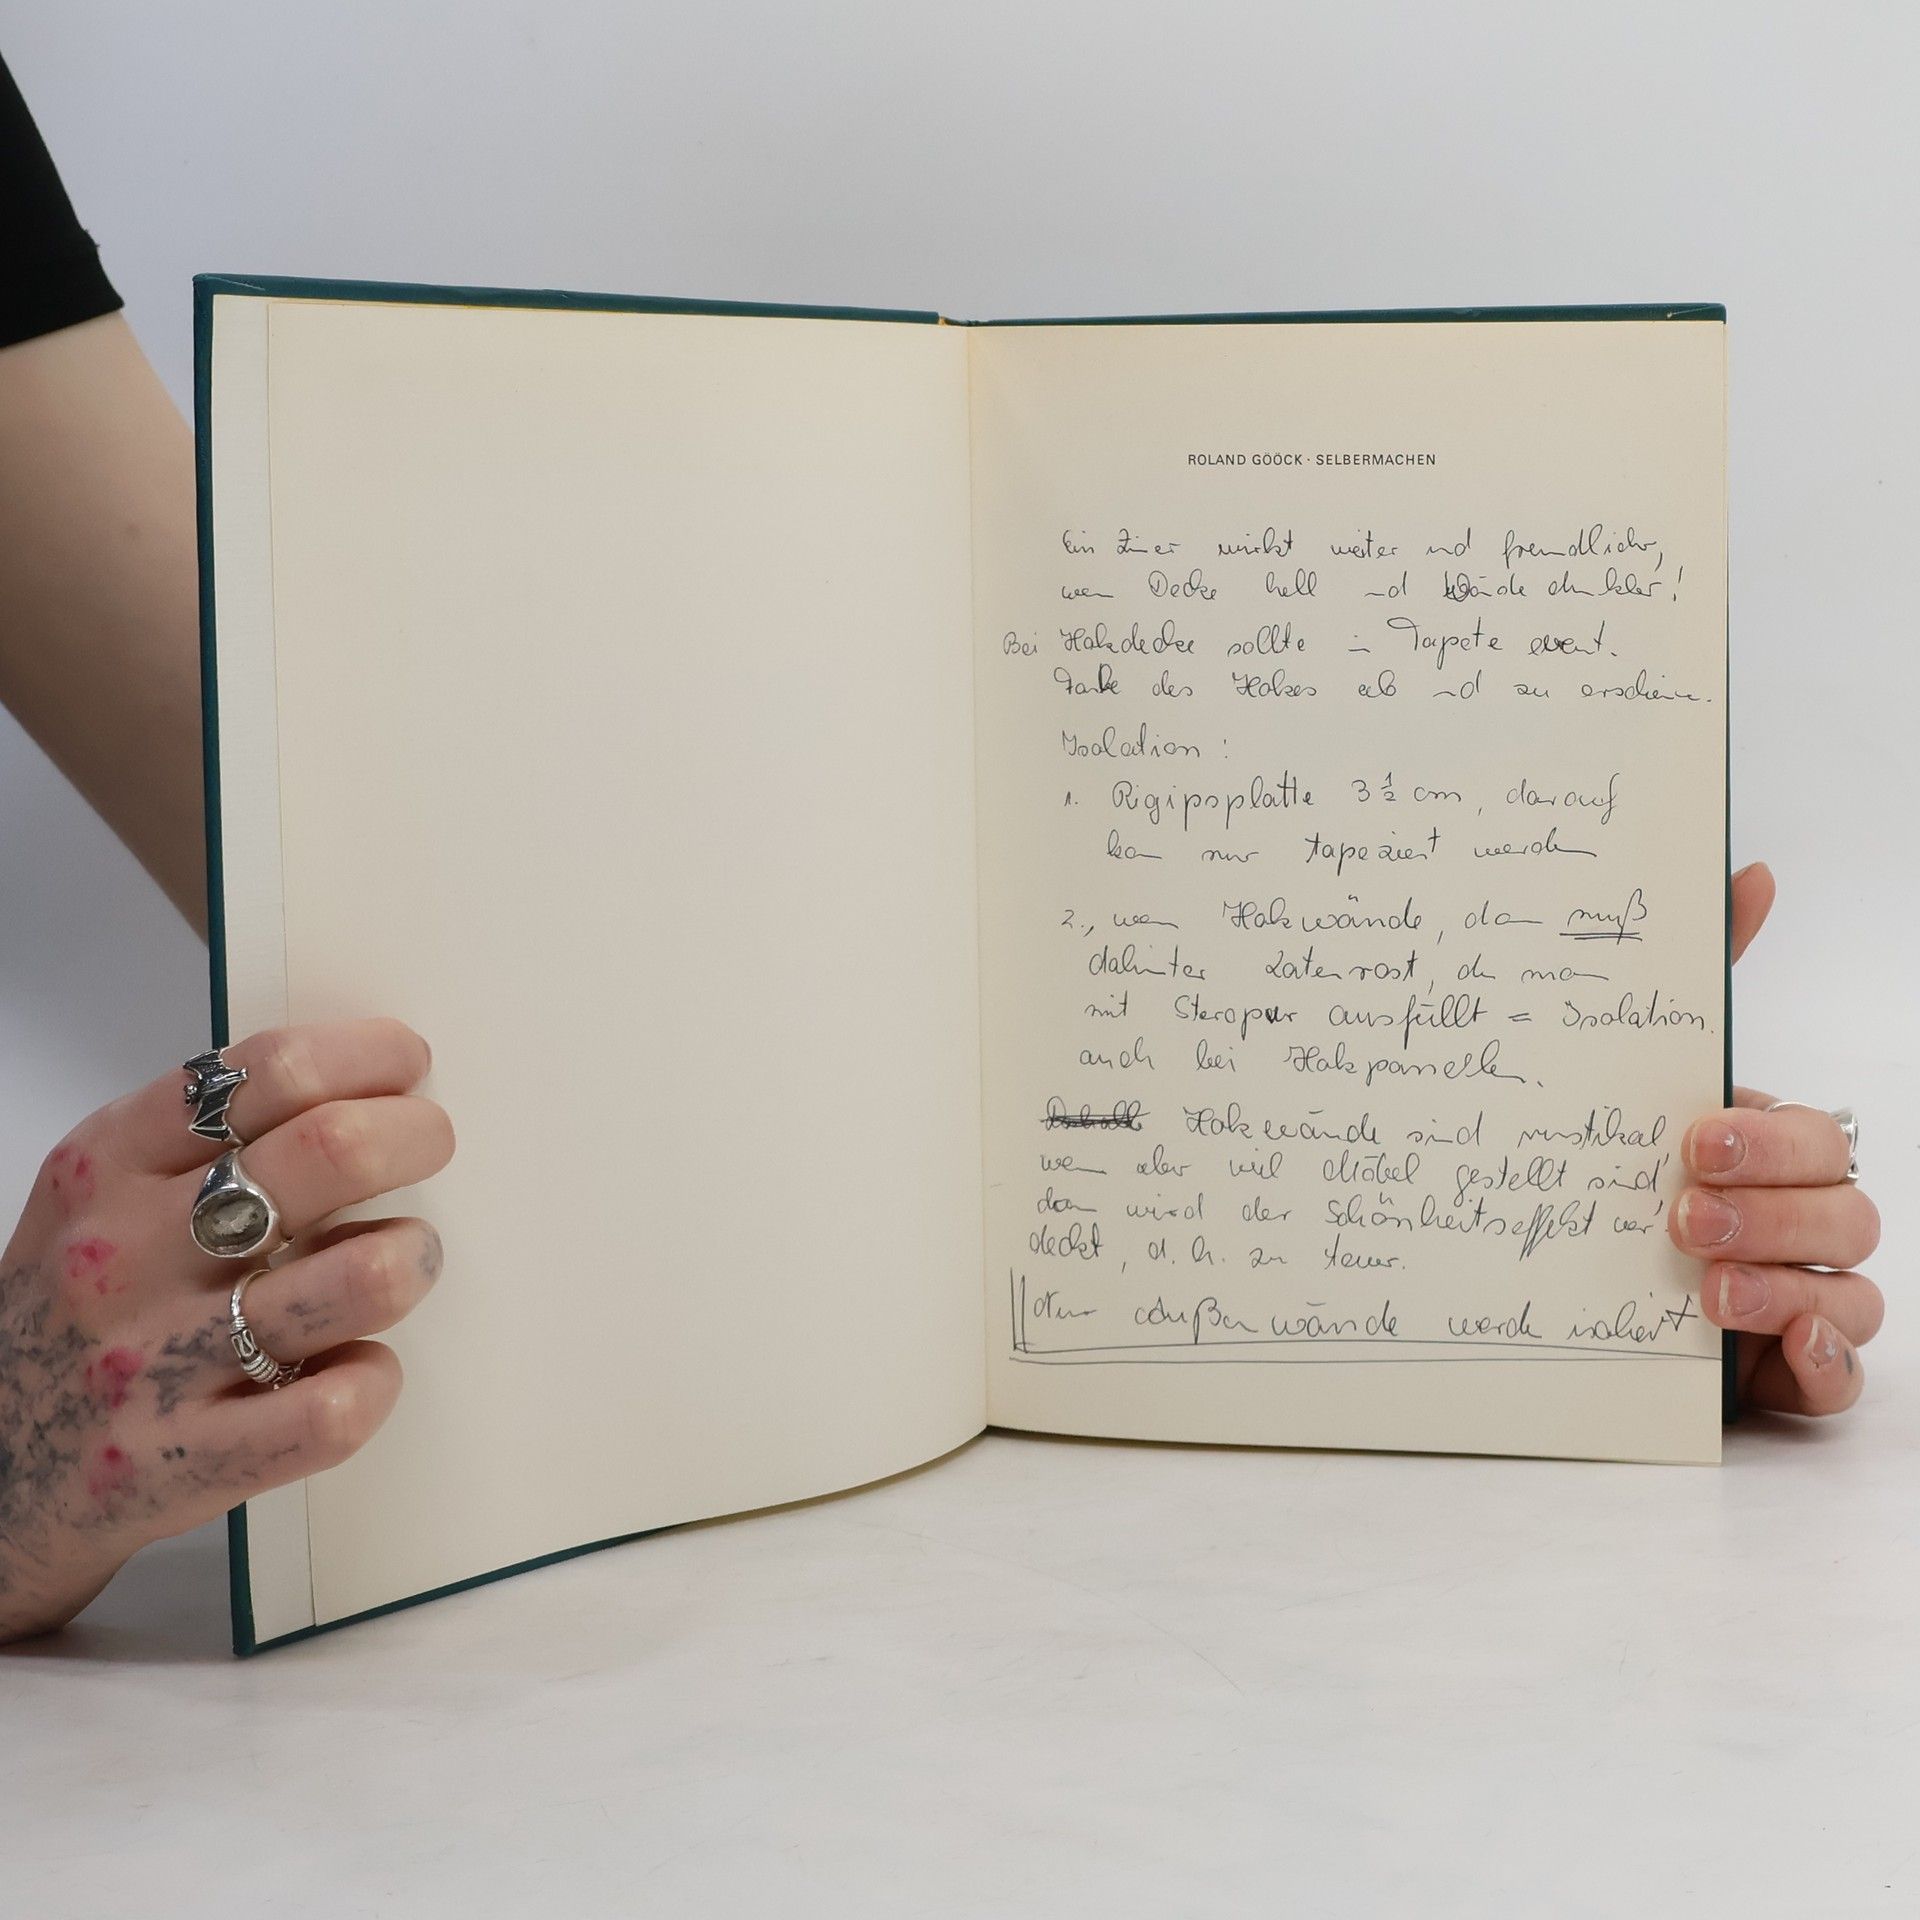 ROLAND GÖÖCK · SELBERMACHEN
Ein Zimer wirkt weiter und freundlicher,
wenn Decke hell und Wände dunkler!
Bei Holzdecke sollte in Tapete event.
Farbe des Holzes ab und zu erscheinen.
Isolation :
1. Rigipsplatte 3 ½ cm, darauf
kann nur tapeziert werden
2., wenn Holzwände, dann muß
dahinter Latenrost, den man
mit Steropur ausfüllt = Isolation.
auch bei Holzpanellen.
Deshalb Holzwände sind rustikal,
wenn aber viel Möbel gestellt sind,
dann wird der Schönheitseffekt ver-
deckt, d. h. zu teuer.
Nur Außenwände werden isoliert